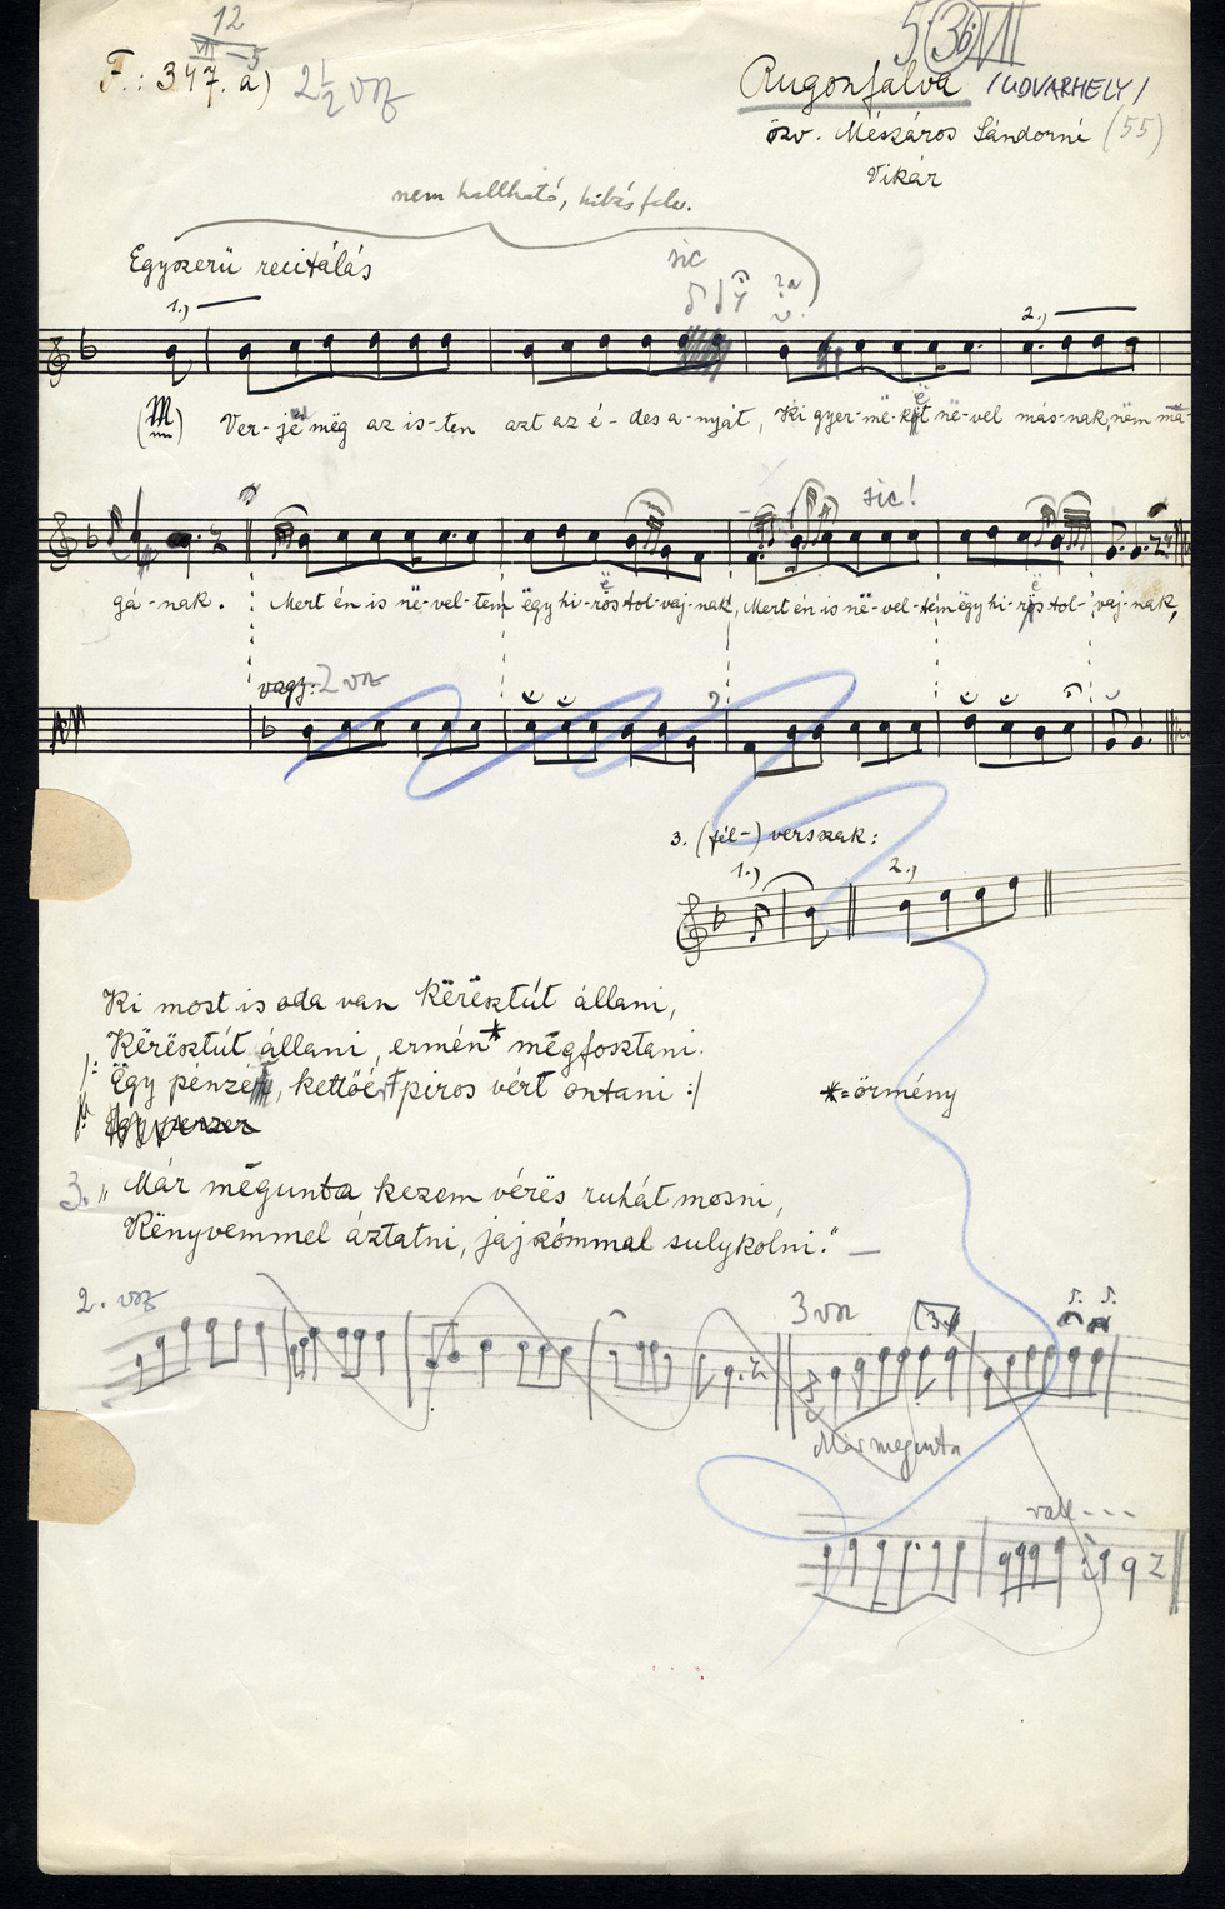 12
VII-5
5 36 VII
F.: 347. a) 2½ vsz
Rugonfalva /UDVARHELY/
özv. Mészáros Sándorné (55)
Vikár
nem hallható, hibás felv.
Egyszerü recitálás
sic
1.,
2.,
Ver-je mëg az is-ten azt az é-des a-nyát, Ki gyer-më-két në-vel más-nak, nëm ma-
sic!
gá-nak. Mert én is në-vel-tem ëgy hi-rës tol-vaj-nak, Mert én is në-vel-tem ëgy hi-rës tol-vaj-nak,
vagy: 2 vsz
3. (fél-) verszak:
1.,
2.,
Ki most is oda van kërësztút állani,
Kërësztút állani, ermén* mëgfosztani.
/: Ëgy pénzét, kettőét piros vért ontani :/
*=örmény
3. „Már mëgunta kezem vérës ruhát mosni,
Kënyvemmel áztatni, jajszómmal sulykolni." —
2. vsz
3 vsz
Már megunta
rall - - -